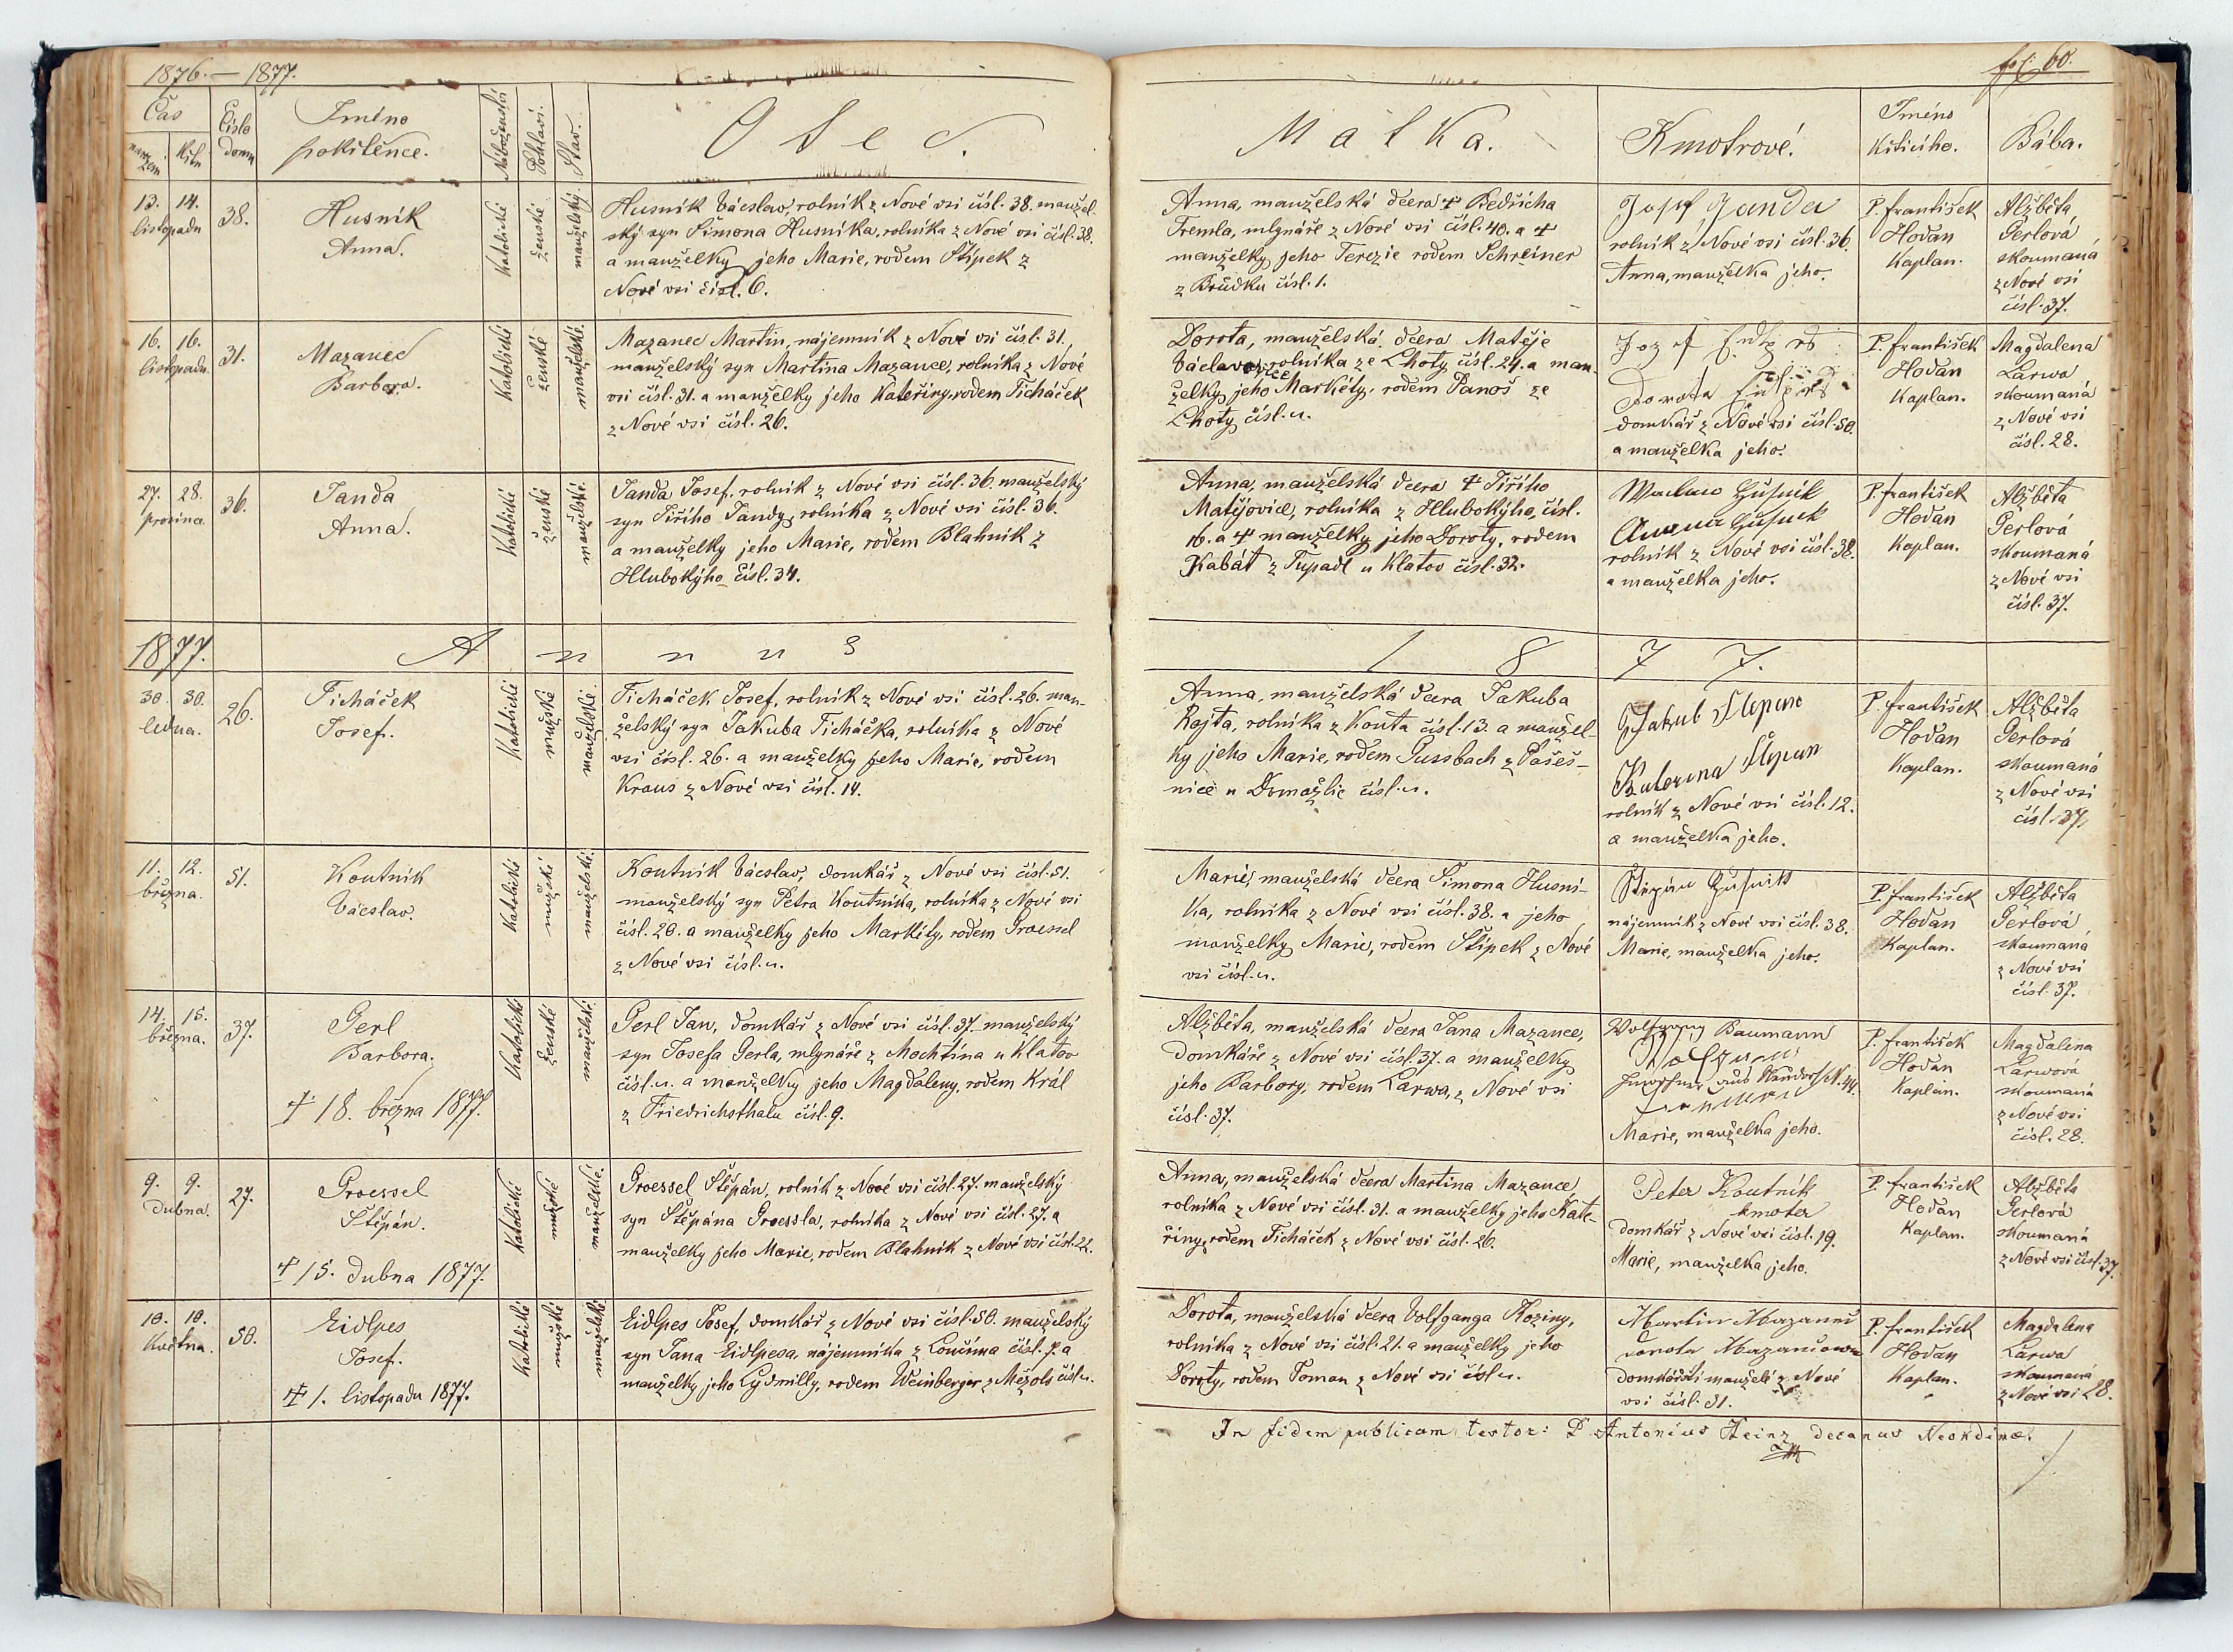 1876. — 1877.
fol. 60.
Čas
narození
křtu
Číslo domu
Jméno
pokřtěnce.
Náboženství
Pohlaví.
Stav.
Otec.
Matka.
Kmotrové.
Jméno
Křtícího.
Bába.
13. 14.
listopadu
38.
Husník
Anna.
Katolické
ženské
manželský
Husník Václav, rolník z Nové vsi čísl. 38. manžel-
ský syn Šimona Husníka, rolníka z Nové vsi čísl. 38.
a manželky jeho Marie, rodem Štípek z
Nové vsi čísl. 6.
Anna, manželská dcera † Bedřicha
Tremla, mlynáře z Nové vsi čísl. 40. a †
manželky jeho Terezie rodem Schreiner
z Brůdku čísl. 1.
Josef Janda
rolník z Nové vsi čísl. 36.
Anna, manželka jeho.
P. František
Hodan
Kaplan.
Alžběta
Gerlová
skoumaná
z Nové vsi
čísl. 37.
16. 16.
listopadu.
31.
Mazanec
Barbora.
Katolické
ženské
manželské.
Mazanec Martin, nájemník z Nové vsi čísl. 31.,
manželský syn Martina Mazance, rolníka z Nové
vsi čísl. 31. a manželky jeho Kateřiny, rodem Ticháček
z Nové vsi čísl. 26.
Dorota, manželská dcera Matěje
rolníka ze Lhoty čísl. 24. a man-
želky jeho Markéty, rodem Panoš ze
Lhoty čísl. u.
Jozef
Dorota
domkář z Nové vsi čísl. 50.
a manželka jeho.
P. František
Hodan
Kaplan.
Magdalena
Larwa
skoumaná
z Nové vsi
čísl. 28.
27. 28.
prosince
36.
Janda
Anna.
Katolické
ženské
manželské.
Janda Josef, rolník z Nové vsi čísl. 36. manželský
syn Jiřího Jandy, rolníka z Nové vsi čísl. 36.
a manželky jeho Marie, rodem Blahník z
Hlubokýho čísl. 34.
Anna, manželská dcera † Jiřího
Matějovice, rolníka z Hlubokýho, čísl.
16. a † manželky jeho Doroty, rodem
Kabát z Tupadl u Klatov čísl. 32.
Anna
rolník z Nové vsi čísl. 38.
a manželka jeho.
P. František
Hodan
Kaplan.
Alžběta
Gerlová
skoumaná
z Nové vsi
čísl. 37.
1877.
Annus 1877.
30. 30.
ledna.
26.
Ticháček
Josef.
Katolické
mužské
manželské.
Ticháček Josef, rolník z Nové vsi čísl. 26. man-
želský syn Jakuba Ticháčka, rolníka z Nové
vsi čísl. 26. a manželky jeho Marie, rodem
Kraus z Nové vsi čísl. 14.
Anna, manželská dcera Jakuba
Rajta, rolníka z Kouta čísl. 13. a manžel-
ky jeho Marie, rodem Gussbach z Pašeš-
nice u Domažlic čísl. u.
Jakub
rolník z Nové vsi čísl. 12.
a manželka jeho.
P. František
Hodan
Kaplan.
Alžběta
Gerlová
skoumaná
z Nové vsi
čísl. 37.
11. 12.
března.
51.
Koutník
Václav.
Katolické
mužské
manželské.
Koutník Václav, domkář z Nové vsi čísl. 51.
manželský syn Petra Koutníka, rolníka z Nové vsi
čísl. 20. a manželky jeho Markéty, rodem Groessel
z Nové vsi čísl. u.
Marie, manželská dcera Šimona Husní-
ka, rolníka z Nové vsi čísl. 38. a jeho
manželky Marie, rodem Štípek z Nové
vsi čísl. u.
nájemník z Nové vsi čísl. 38.
Marie, manželka jeho.
P. František
Hodan
Kaplan.
Alžběta
Gerlová
skoumaná
z Nové vsi
čísl. 37.
14. 15.
března.
37.
Gerl
Barbora.
† 18. března 1877.
Katolické
ženské
manželské.
Gerl Jan, domkář z Nové vsi čísl. 37. manželský
syn Josefa Gerla, mlynáře z Mochtína u Klatov
čísl. u. a manželky jeho Magdaleny, rodem Král
z Friedrichsthalu čísl. 9.
Alžběta, manželská dcera Jana Mazance,
domkáře z Nové vsi čísl. 37. a manželky
jeho Barbory, rodem Larwa, z Nové vsi
čísl. 37.
Wolfgang Baumann
Marie, manželka jeho.
P. František
Hodan
Kaplan.
Magdalena
Larwová
skoumaná
z Nové vsi
čísl. 28.
9. 9.
Dubna.
27.
Groessel
Štěpán.
† 15. dubna 1877.
Katolické
mužské
manželské.
Groessel Štěpán, rolník z Nové vsi čísl. 27. manželský
syn Štěpána Groessla, rolníka z Nové vsi čísl. 27. a
manželky jeho Marie, rodem Blahník z Nové vsi čísl. 22.
Anna, manželská dcera Martina Mazance
rolníka z Nové vsi čísl. 31. a manželky jeho Kate-
řiny, rodem Ticháček z Nové vsi čísl. 26.
Peter Koutník
kmoter
domkář z Nové vsi čísl. 19.
Marie, manželka jeho.
P. František
Hodan
Kaplan.
Alžběta
Gerlová
skoumaná
z Nové vsi čísl. 37.
10. 10.
Května.
50.
Eidlpes
Josef.
† 1. listopadu 1877.
Katolické
mužské
manželské
Eidlpes Josef, domkář z Nové vsi čísl. 50. manželský
syn Jana Eidlpesa, nájemníka z Loučima čísl. 7. a
manželky jeho Lydmilly, rodem Weinberger z Mezols čísl. u.
Dorota, manželská dcera Volfganga Koziny,
rolníka z Nové vsi čísl. 21. a manželky jeho
Doroty, rodem Toman z Nové vsi čísl. u.
Martin
Dorota
domkářští manželé z Nové
vsi čísl. 31.
P. František
Hodan
Kaplan.
Magdalena
Larwa
skoumaná
z Nové vsi 28.
In fidem publicam testor: P. Antonius Heinz decanus Neokdinæ.